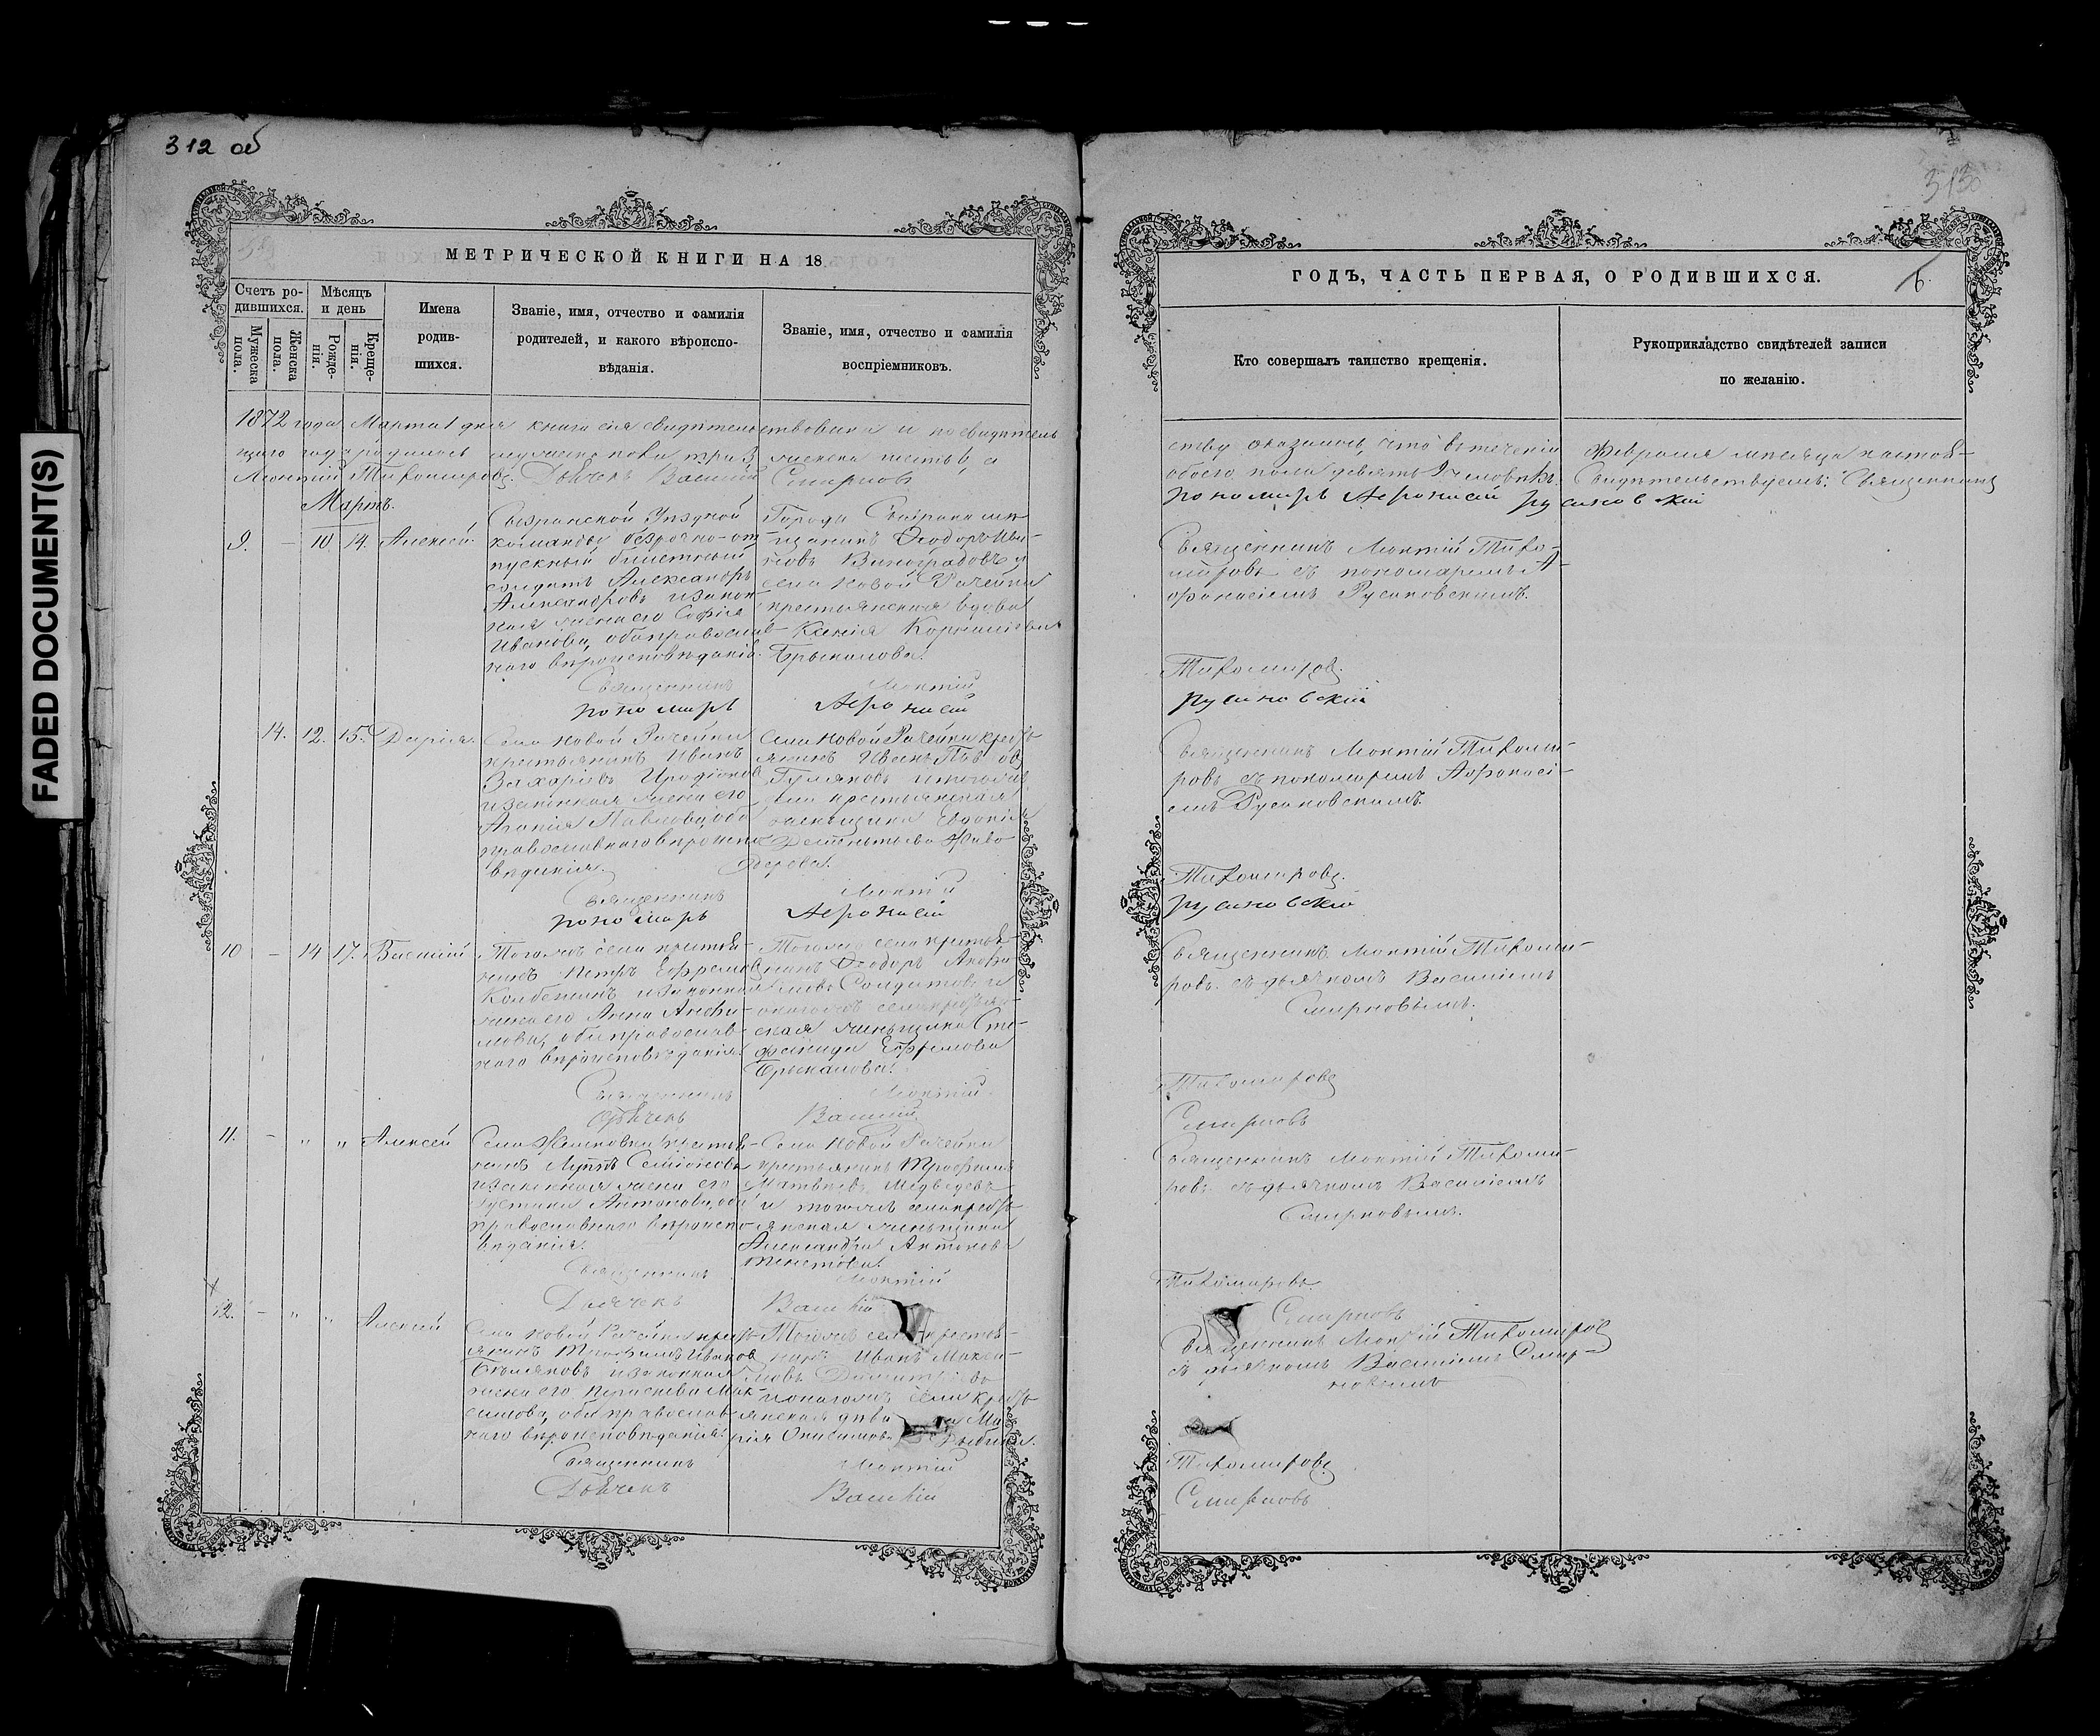 312 об
313
МЕТРИЧЕСКОЙ КНИГИ НА 18
Счетъ ро-
дившихся.
Мужеска
пола.
Женска
пола.
Мѣсяцъ
и день
Рожде-
нія.
Креще-
нія.
Имена
родив-
шихся.
Званіе, имя, отчество и фамилія
родителей, и какого вѣроиспо-
вѣданія.
Званіе, имя, отчество и фамилія
воспріемниковъ.
1872 года Марта 1 дня книга сія свидѣтельствована и по свидѣтель
Леонтій Тихомировъ. Дьячекъ Василій Смирновъ
Мартъ.
9. - 10 14. Алексей.
Сызранской Уѣздной
команды безсрочно-от
пускный билетный
солдатъ Александръ
Александровъ и закон
ная жена его Софія
Иванова, оба православ
наго вѣроисповѣданія.
Города Сызрани мѣ
щанинъ Ѳеодоръ Ива-
новъ Виноградовъ и
села Новой Рачейки
крестьянская вдова
Ксенія Корнилова
Брыкалова.
Священникъ Леонтій
Пономарь Аѳонасій
14. 12. 15. Дарія.
Села Новой Рачейки
крестьянинъ Иванъ
Захаровъ Иродіонов
и законная жена его
Агапія Павлова, оба
православнаго вѣроиспо
вѣданія.
Села Новой Рачейки кресть
янинъ
Гуляковъ и тогоже
села крестьянская
женщина Евдокія
Дементьева
Священникъ Леонтій
Пономарь Аѳонасій
10 - 14 17. Василій
Тогоже села крестья-
нинъ Петръ Ефремов
Колбенинъ и законная
жена его Анна Анфи-
мова, оба православ-
наго вѣроисповѣданія.
Тогоже села крестья-
нинъ Ѳеодоръ Анфи-
мовъ Солдатовъ и
онагожъ села крестьян-
ская женщина Сте-
фанида Ефремова
Брыкалова.
Священникъ Леонтій
Дьячекъ Василій
11. - " " Алексей
крестья-
нинъ
и законная жена его
Устинья Антонова, оба
православнаго вѣроиспо
вѣданія.
Села Новой Рачейки
крестьянинъ Трофимъ
Матвѣевъ Медведевъ
и тогоже села кресть
янская женщина
Александра Антонова
Священникъ Леонтій
Дьячекъ Василій
12. - " " Алексей
Села Новой Рачейки кресть
янинъ Трофимъ Иванов
Бѣляковъ и законная
жена его Параскева Мак-
симова, оба православ
наго вѣроисповѣданія.
Тогоже села крестья-
нинъ Иванъ Макси-
мовъ
и онагожъ села кресть
янская Ма
рія Онисимова
Священникъ Леонтій
Дьячекъ Василій
ГОДЪ, ЧАСТЬ ПЕРВАЯ, О РОДИВШИХСЯ.
6.
Кто совершалъ таинство крещенія.
Рукоприкладство свидѣтелей записи
по желанію.
ству оказалось, что въ теченіи Февраля мѣсяца настоя-
обоего пола девять 9 человѣкъ. Свидѣтельствуемъ: Священникъ
Пономарь Аѳонасій Русановскій
Священникъ Леонтій Тихо-
мировъ съ пономаремъ А-
ѳонасіемъ Русановскимъ.
Тихомировъ.
Русановскій
Священникъ Леонтій Тихоми-
ровъ съ пономаремъ Аѳонасі-
емъ Русановскимъ.
Тихомировъ.
Русановскій
Священникъ Леонтій Тихоми-
ровъ съ дьячкомъ Василіемъ
Смирновымъ.
Тихомировъ
Смирновъ
Священникъ Леонтій Тихоми-
ровъ съ дьячкомъ Василіемъ
Смирновымъ.
Тихомировъ.
Смирновъ
Священникъ Леонтій Тихомиров
съ дьячкомъ Василіемъ Смир-
новымъ
Тихомировъ.
Смирновъ
FADED DOCUMENT(S)